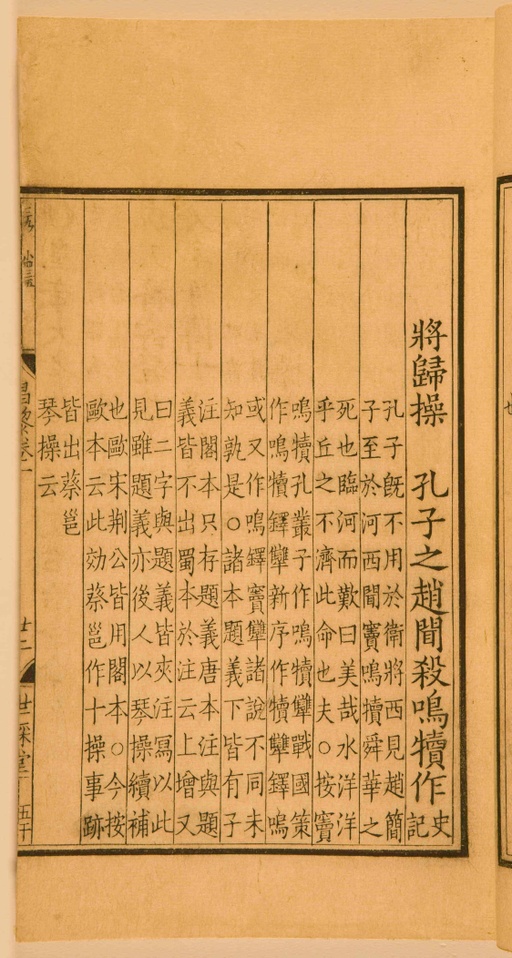 將歸操 孔子之趙聞殺鳴犢作 史
記
孔子旣不用於衛將西見趙簡
子至於河西聞竇鳴犢舜華之
死也臨河而歎曰美哉水洋洋
乎丘之不濟此命也夫○按竇
鳴犢孔叢子作鳴犢犨戰國策
作鳴犢鐸犨新序作犢犨鐸鳴
或又作鳴鐸竇犨諸說不同未
知孰是○諸本題義下皆有子
注閣本只存題義唐本注與題
義皆不出蜀本於注云上增又
曰二字與題義皆夾注冩以此
見雖題義亦後人以琴操續補
也歐宋荆公皆用閣本○今按
歐本云此効蔡邕作十操事跡
皆出蔡邕
琴操云
昌黎卷一
廿二
世綵堂